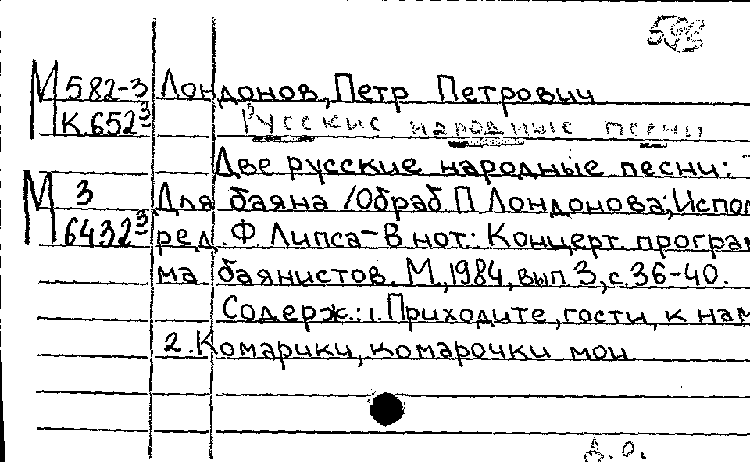 М 582-3 Лондонов, Петр Петрович
К 652³ Русские народные песни
Две русские народные песни:
М 3 Для баяна /Обраб. П Лондонова; Испол
6432³ ред. Ф. Липса - В нот.: Концерт. програм
ма баянистов. М., 1984, вып 3, с. 36-40.
Содерж.: 1. Приходите, гости, к нам
2. Комарики, комарочки мои